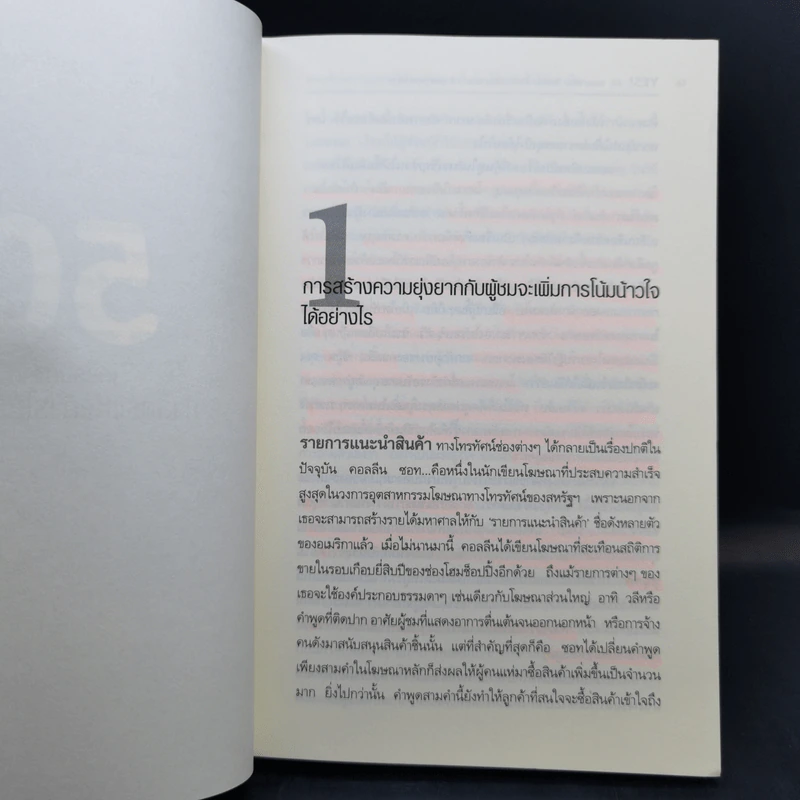 50
1
การสร้างความยุ่งยากกับผู้ชมจะเพิ่มการโน้มน้าวใจ
ได้อย่างไร
รายการแนะนำสินค้า ทางโทรทัศน์ช่องต่างๆ ได้กลายเป็นเรื่องปกติใน
ปัจจุบัน คอลลีน ซอท...คือหนึ่งในนักเขียนโฆษณาที่ประสบความสำเร็จ
สูงสุดในวงการอุตสาหกรรมโฆษณาทางโทรทัศน์ของสหรัฐฯ เพราะนอกจาก
เธอจะสามารถสร้างรายได้มหาศาลให้กับ 'รายการแนะนำสินค้า' ชื่อดังหลายตัว
ของอเมริกาแล้ว เมื่อไม่นานมานี้ คอลลีนได้เขียนโฆษณาที่สะเทือนสถิติการ
ขายในรอบเกือบยี่สิบปีของช่องโฮมช็อปปิ้งอีกด้วย ถึงแม้รายการต่างๆ ของ
เธอจะใช้องค์ประกอบธรรมดาๆ เช่นเดียวกับโฆษณาส่วนใหญ่ อาทิ วลีหรือ
คำพูดที่ติดปาก อาศัยผู้ชมที่แสดงอาการตื่นเต้นจนออกนอกหน้า หรือการจ้าง
คนดังมาสนับสนุนสินค้าชิ้นนั้น แต่ที่สำคัญที่สุดก็คือ ซอทได้เปลี่ยนคำพูด
เพียงสามคำในโฆษณาหลักก็ส่งผลให้ผู้คนแห่มาซื้อสินค้าเพิ่มขึ้นเป็นจำนวน
มาก ยิ่งไปกว่านั้น คำพูดสามคำนี้ยังทำให้ลูกค้าที่สนใจจะซื้อสินค้าเข้าใจถึง